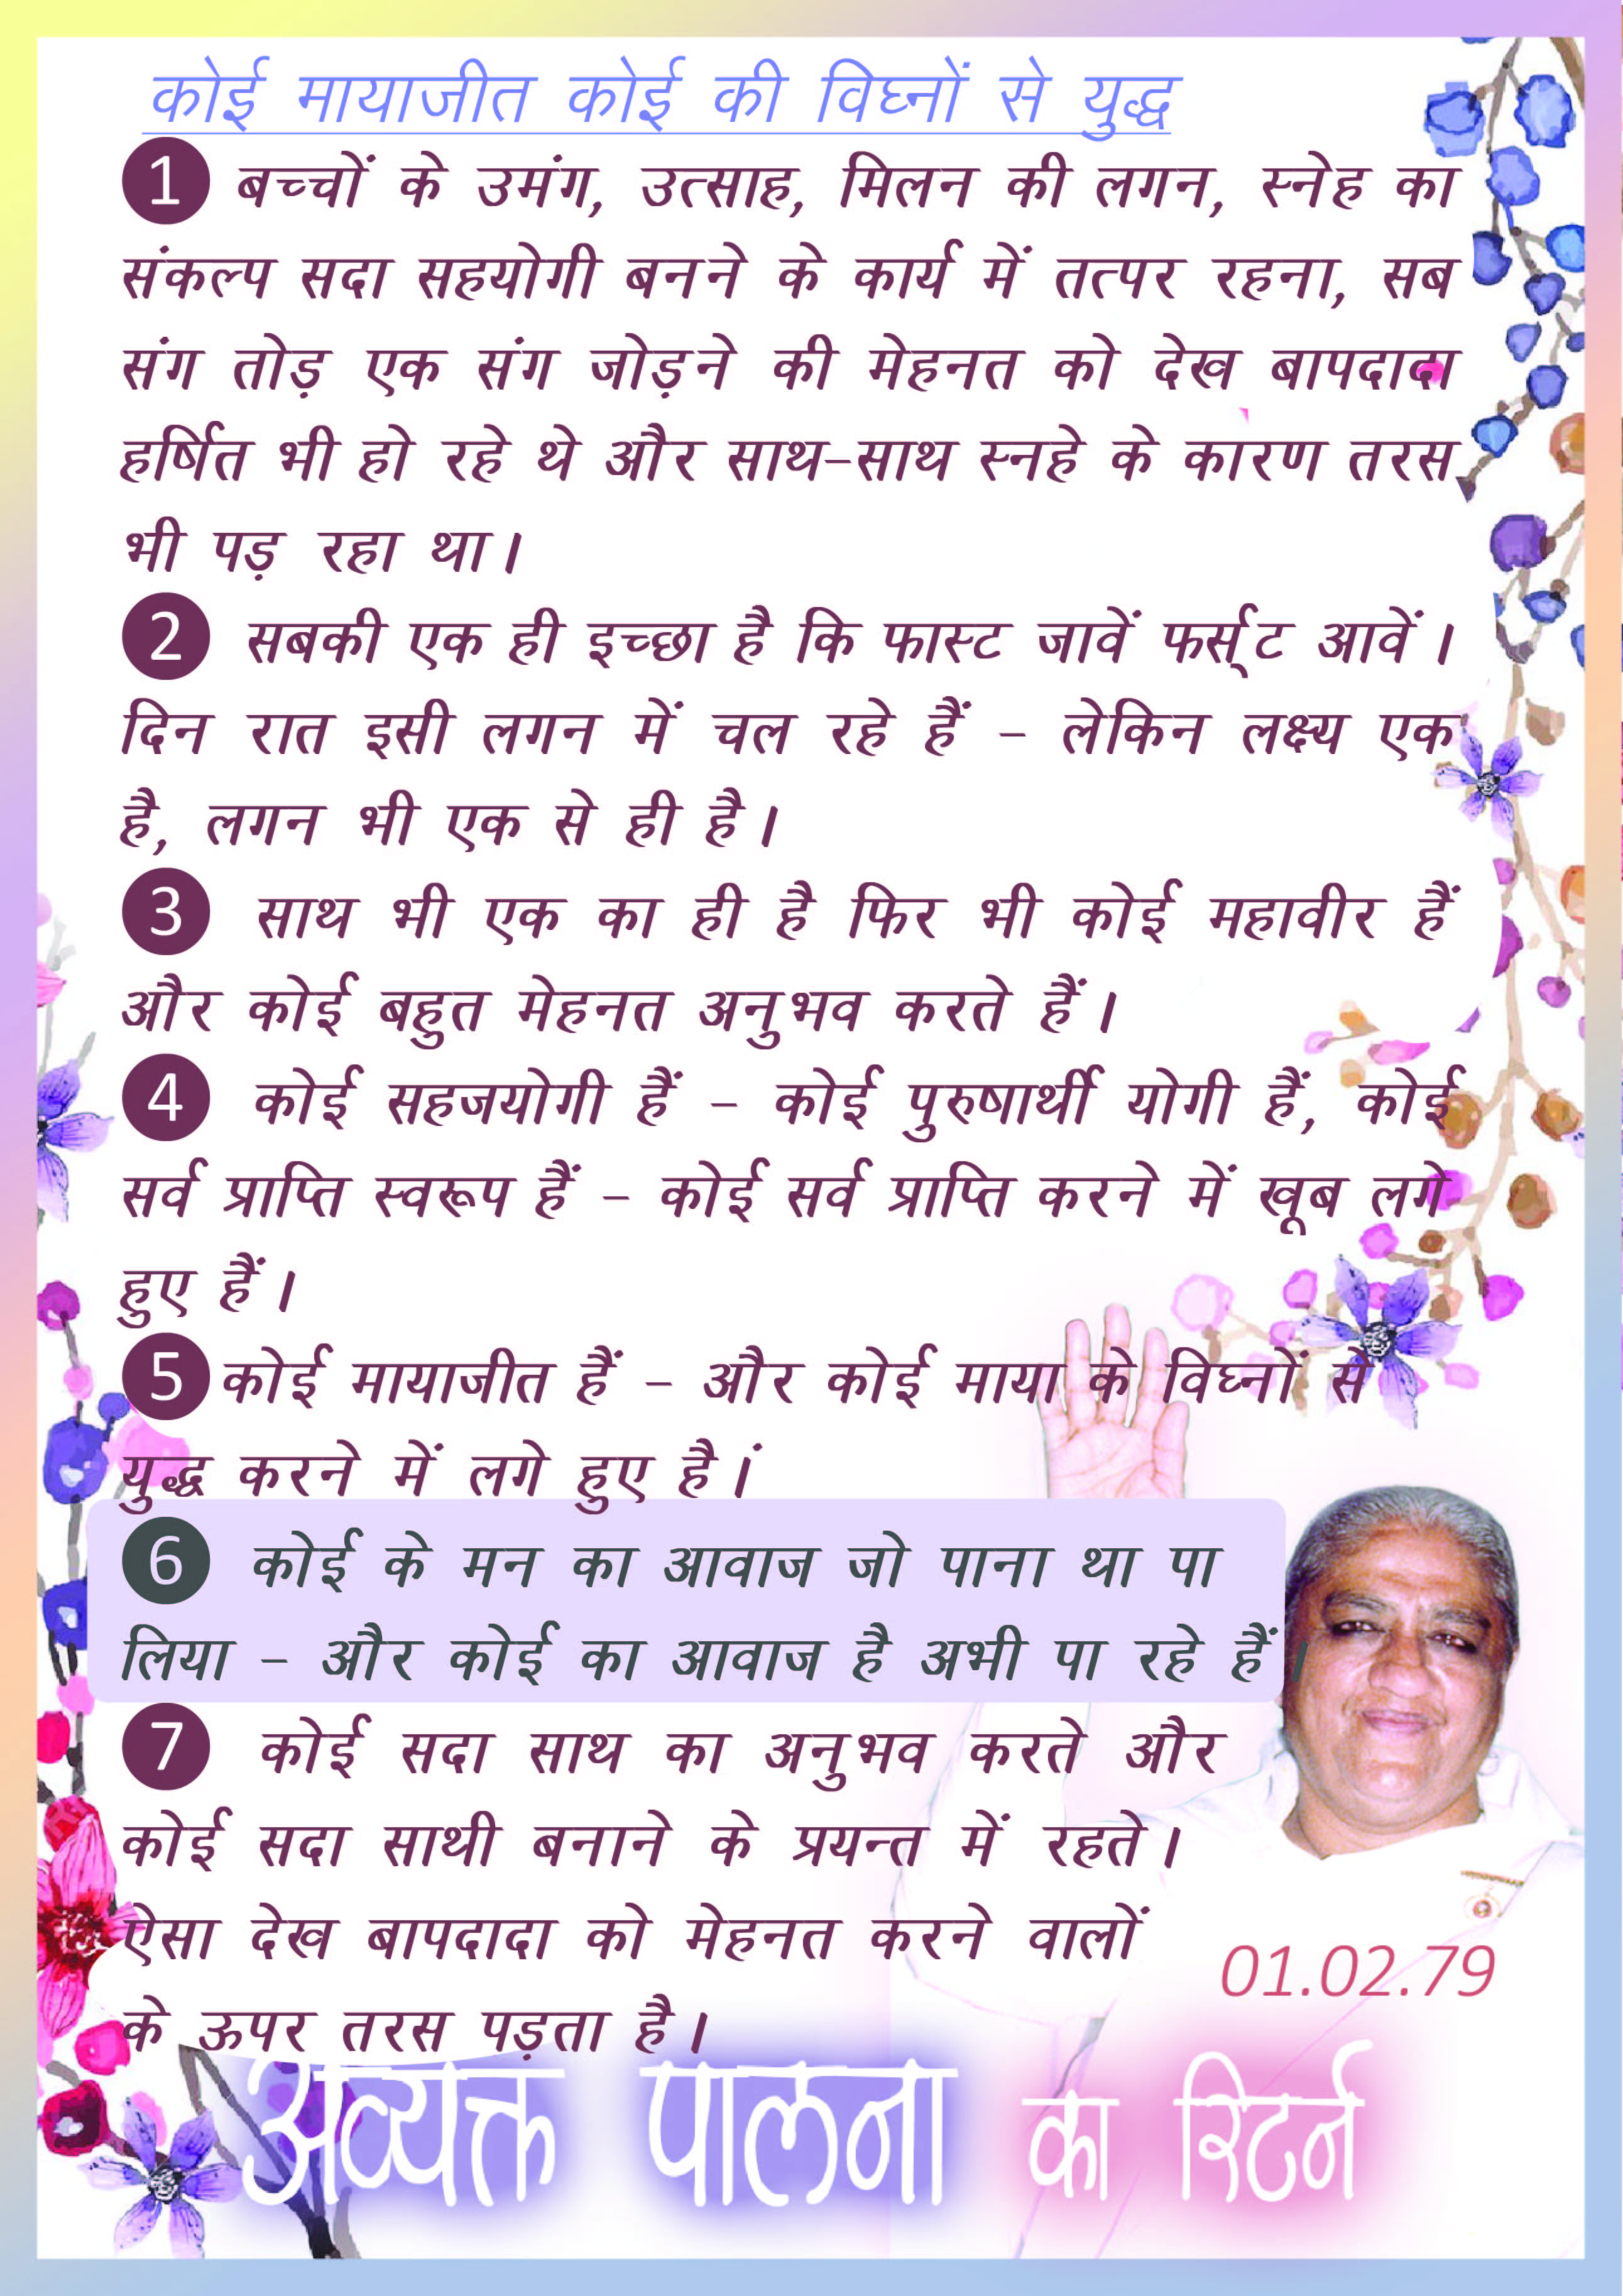 कोई मायाजीत कोई की विघ्नों से युद्ध
1 बच्चों के उमंग, उत्साह, मिलन की लगन, स्नेह का
संकल्प सदा सहयोगी बनने के कार्य में तत्पर रहना, सब
संग तोड़ एक संग जोड़ने की मेहनत को देख बापदादा
हर्षित भी हो रहे थे और साथ-साथ स्नहे के कारण तरस
भी पड़ रहा था।
2 सबकी एक ही इच्छा है कि फास्ट जावें फर्स्ट आवें।
दिन रात इसी लगन में चल रहे हैं - लेकिन लक्ष्य एक
है, लगन भी एक से ही है।
3 साथ भी एक का ही है फिर भी कोई महावीर हैं
और कोई बहुत मेहनत अनुभव करते हैं।
4 कोई सहजयोगी हैं - कोई पुरुषार्थी योगी हैं, कोई
सर्व प्राप्ति स्वरूप हैं - कोई सर्व प्राप्ति करने में खूब लगे
हुए हैं।
5 कोई मायाजीत हैं - और कोई माया के विघ्नों से
युद्ध करने में लगे हुए है।ं
6 कोई के मन का आवाज जो पाना था पा
लिया - और कोई का आवाज है अभी पा रहे हैं।
7 कोई सदा साथ का अनुभव करते और
कोई सदा साथी बनाने के प्रयन्त में रहते।
ऐसा देख बापदादा को मेहनत करने वालों
के ऊपर तरस पड़ता है।
01.02.79
अव्यक्त पालना का रिटर्न